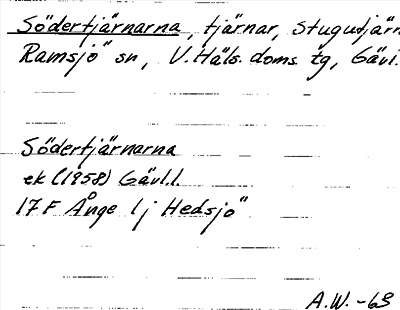 Södertjärnarna, tjärnar, Stugutjärn
Ramsjö sn, V. Häls. doms. tg, Gävl.
Södertjärnarna
ek (1958) Gävl.l.
17F Ånge 1j Hedsjö
A.W. -63